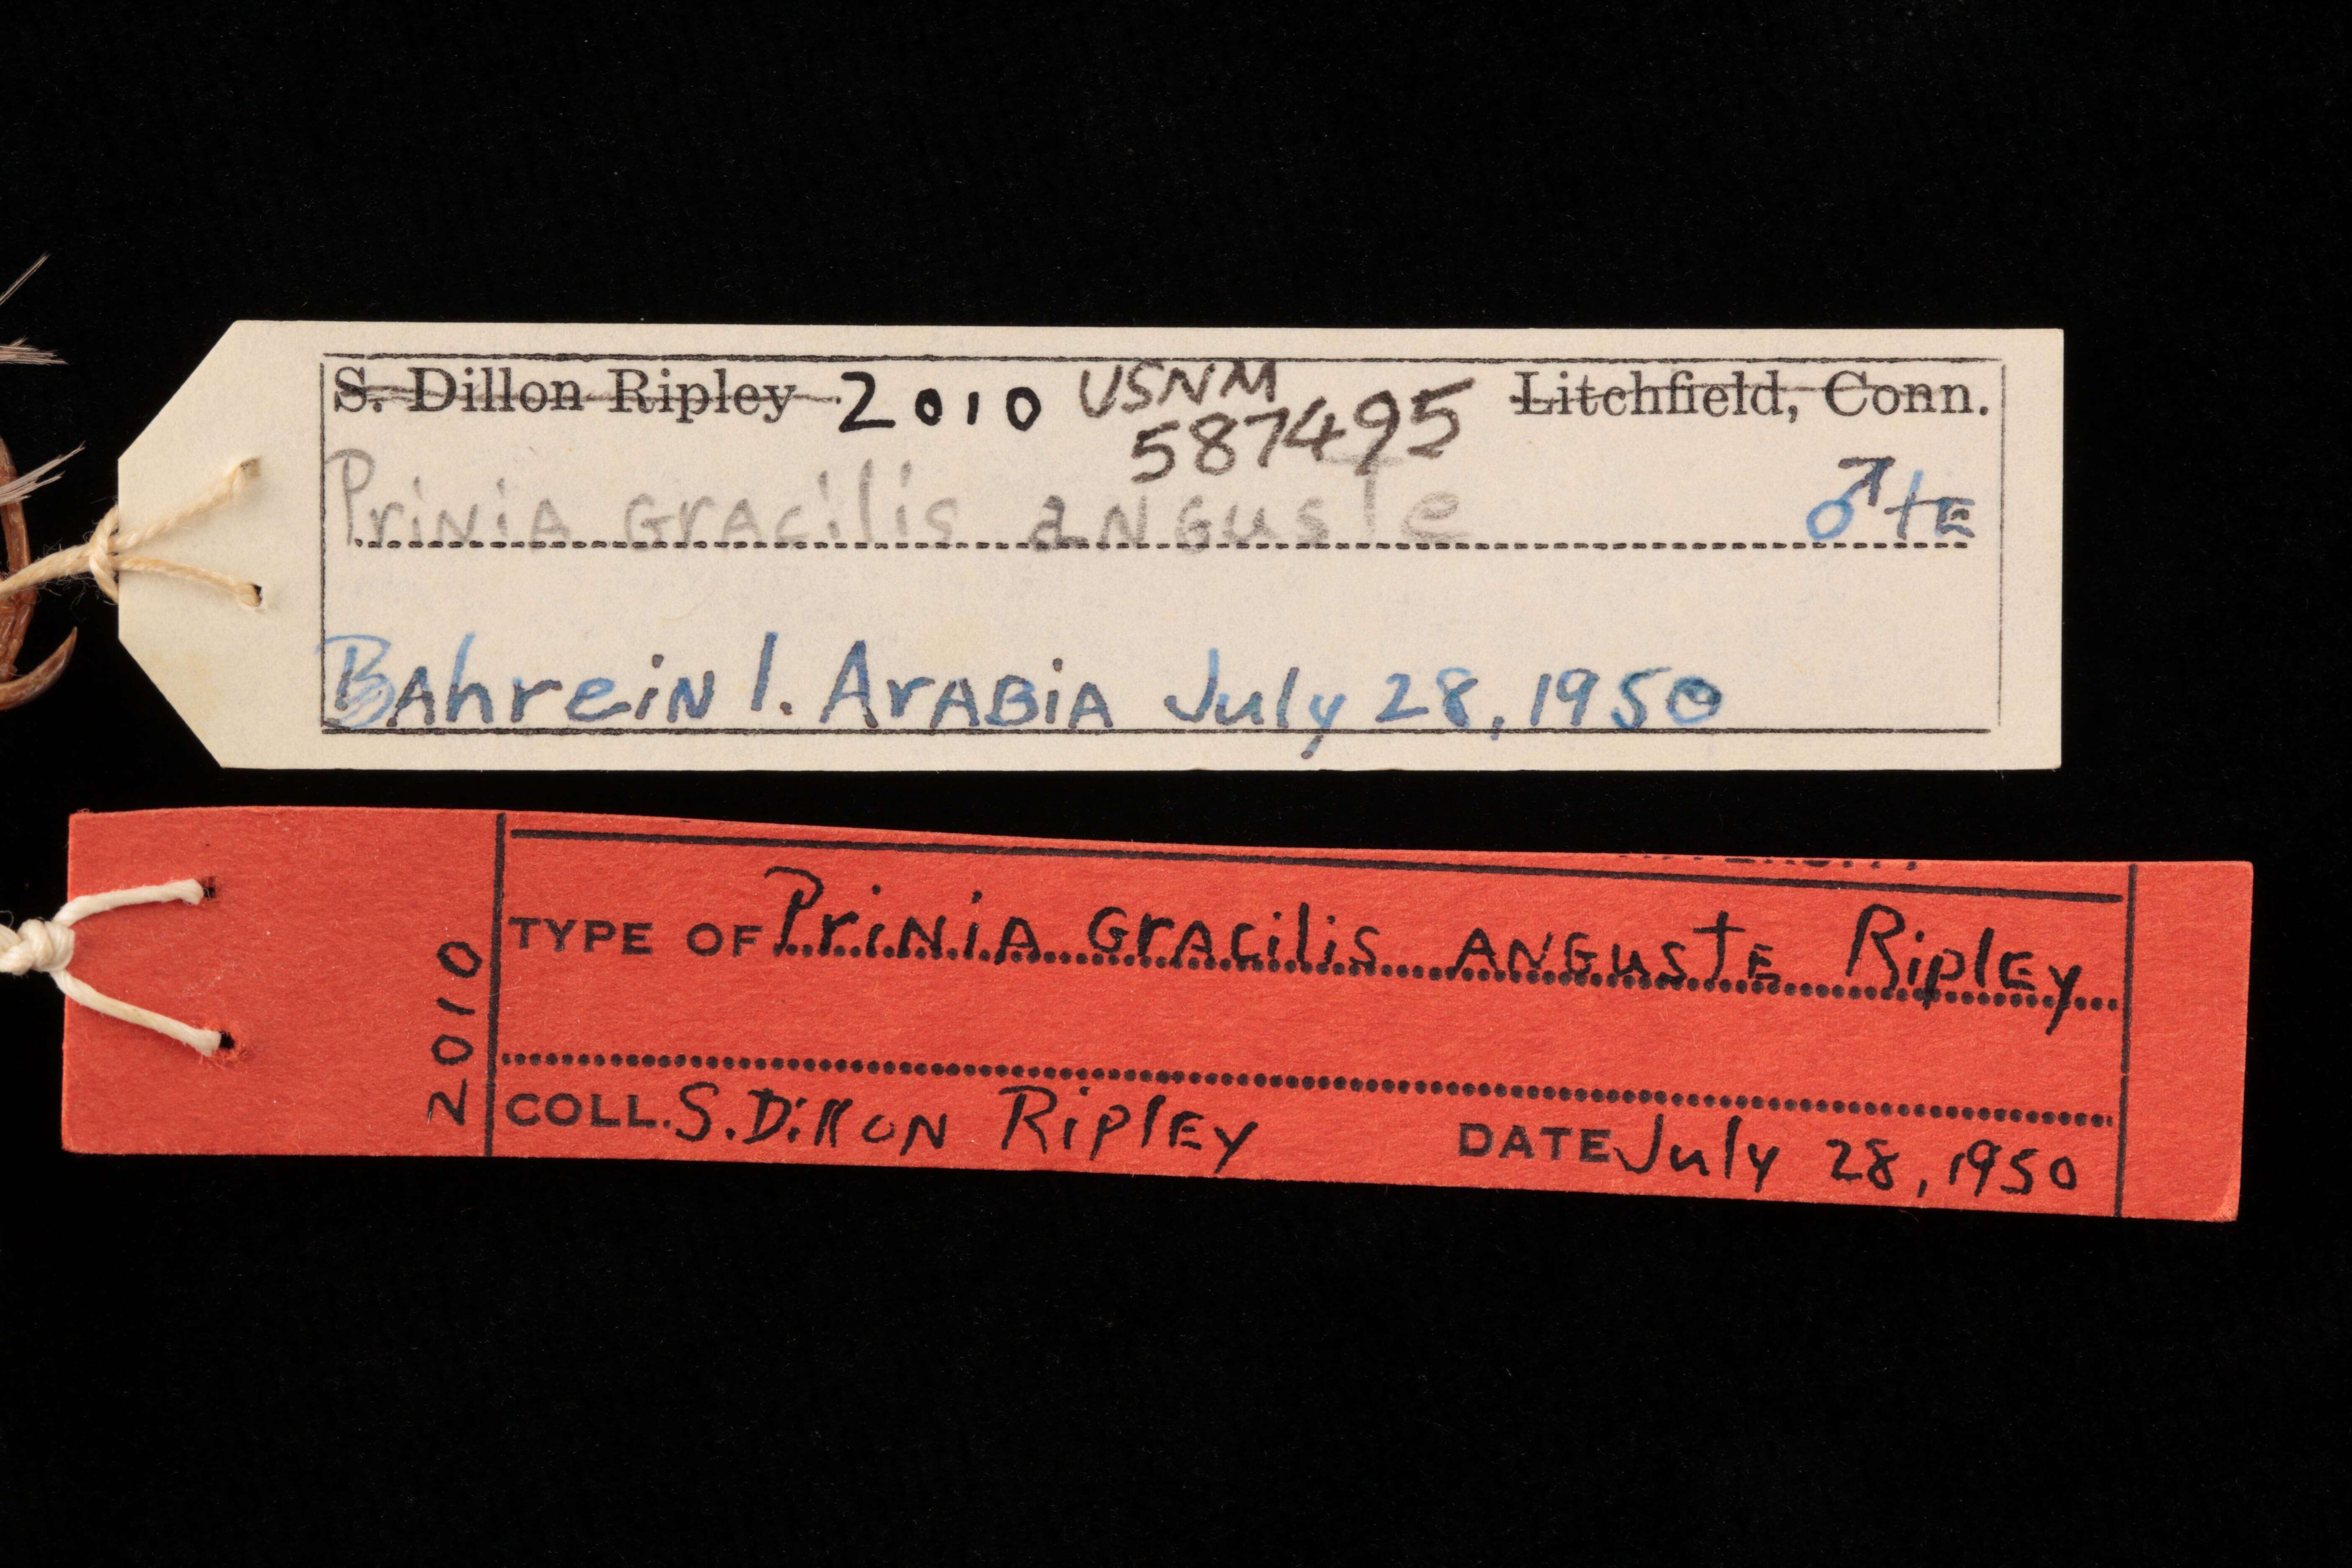 S. Dillon Ripley 2010 USNM Litchfield, Conn.
587495
Prinia gracilis anguste ♂ te
Bahrein I. Arabia July 28, 1950
TYPE OF Prinia gracilis anguste Ripley
2010
COLL. S. Dillon Ripley DATE July 28, 1950